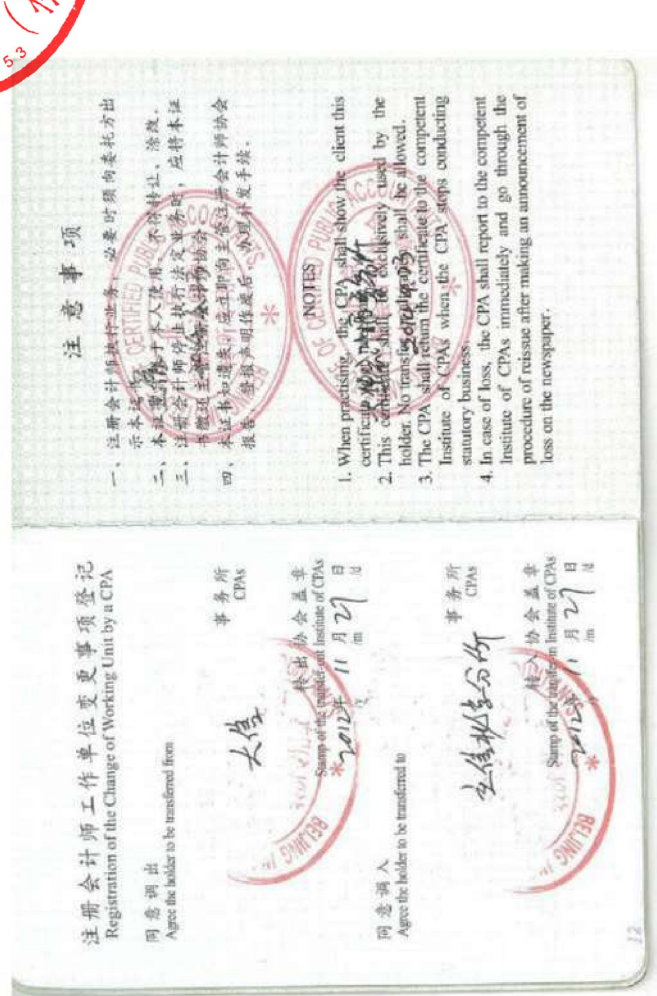 注册会计师工作单位变更事项登记
Registration of the Change of Working Unit by a CPA
同意调出
Agree the holder to be transferred from
大信
事务所
CPAs
转出协会盖章
Stamp of the transfer-out Institute of CPAs
2012年 11月 27日
/y /m /d
同意调入
Agree the holder to be transferred to
事务所
CPAs
转入协会盖章
Stamp of the transfer-in Institute of CPAs
2012年 11月 27日
/m /d
BEIJING
BEIJING
12
注意事项
一、注册会计师执行业务，必要时须向委托方出
示本证
二、本证书只限于本人使用，不得转让、涂改。
三、注册会计师停止执行法定业务时，应将本证
书缴还主管注册会计师协会
四、本证书如遗失，应立即向主管注册会计师协会
报告，登报声明作废后，办理补发手续。
NOTES
1. When practising, the CPA shall show the client this
certificate
2. This certificate shall be exclusively used by the
holder. No transfer shall be allowed.
3. The CPA shall return the certificate to the competent
Institute of CPAs when the CPA stops conducting
statutory business.
4. In case of loss, the CPA shall report to the competent
Institute of CPAs immediately and go through the
procedure of reissue after making an announcement of
loss on the newspaper.
CERTIFIED PUBLIC ACCO
OF CERTIFIED PUBLIC ACCO
5 3